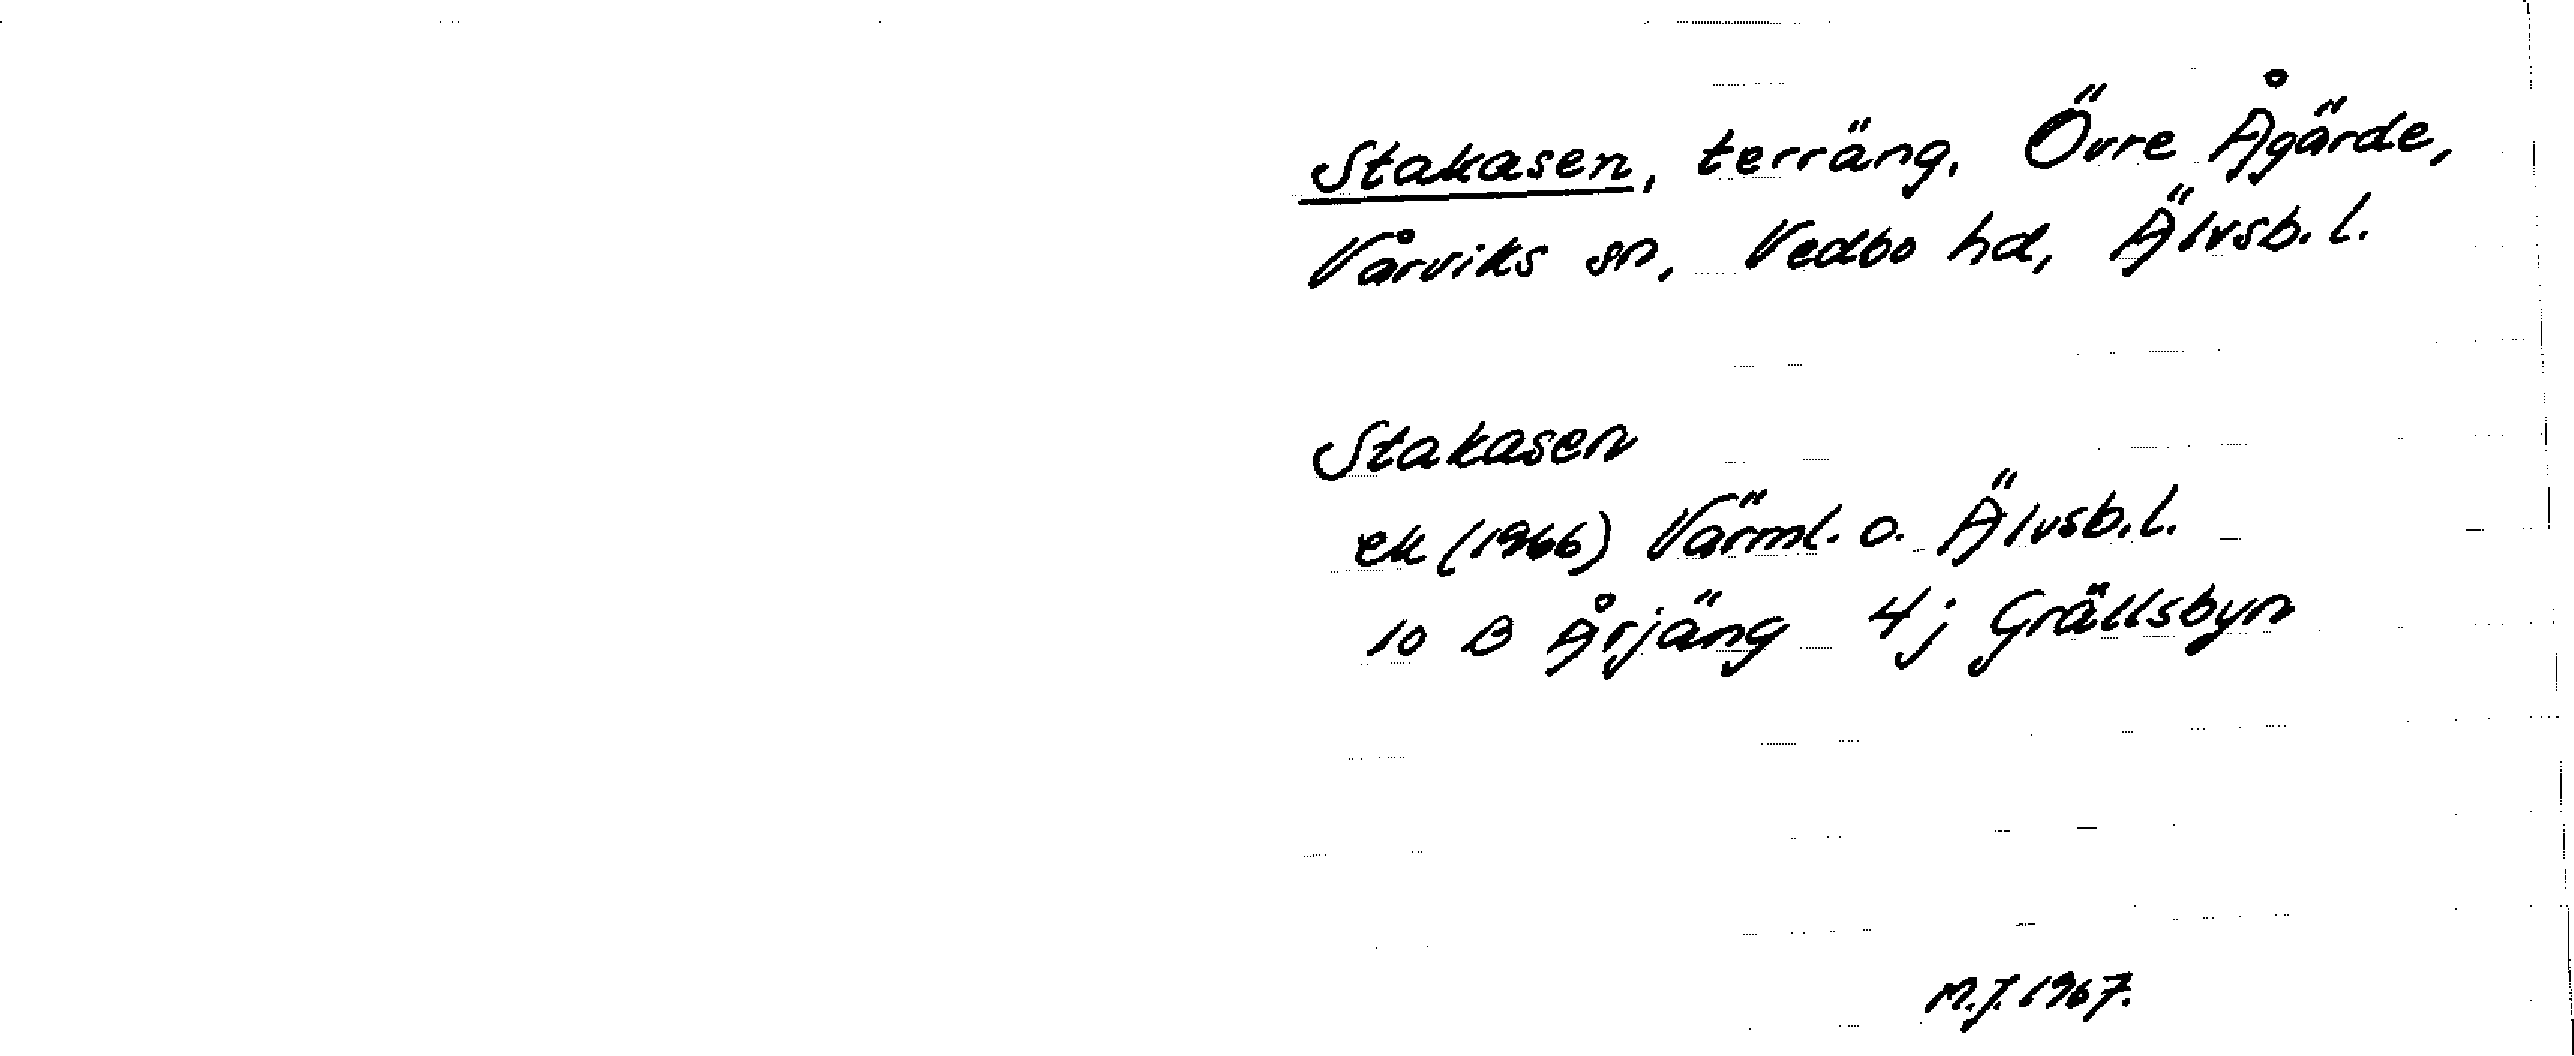 Stakasen, terräng, Övre Ågärde,
Vårviks sn, Vedbo hd, Älvsb. l.
Stakasen
ek (1966) Värml. o. Älvsb. l.
10 B Årjäng 4 j Grällsbyn
M.J. 1967.